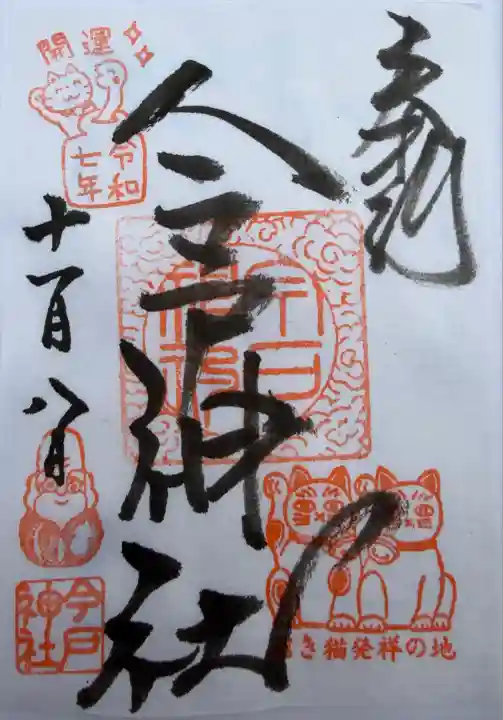 開運
令和
七年
奉拝
今戸神社
十一月八日
今戸
神社
今戸
神社
き猫発祥の地